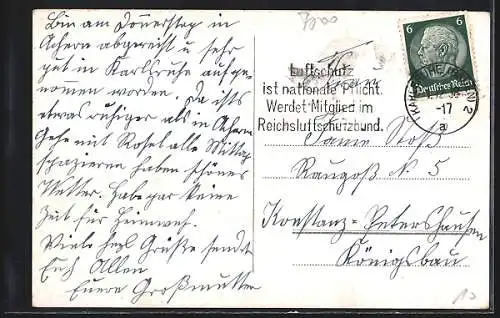 Bin am Donnerstag in
Achern abgereist u. sehr
gut in Karlsruhe aufge-
nommen worden. Da ists
etwas ruhiger als in Achern
Gehe mit Rosel alle Mittag
spazieren haben schönes
Wetter. Habe gar keine
Zeit für Heimweh.
Viele herzl Grüße sendet
Euch Allen
Euere Großmutter
Luftschutz
ist nationale Pflicht
Werdet Mitglied im
Reichsluftschutzbund.
6 6
Deutsches Reich
-17
a
2
N° 5
Konstanz-Petershausen
Königsbau